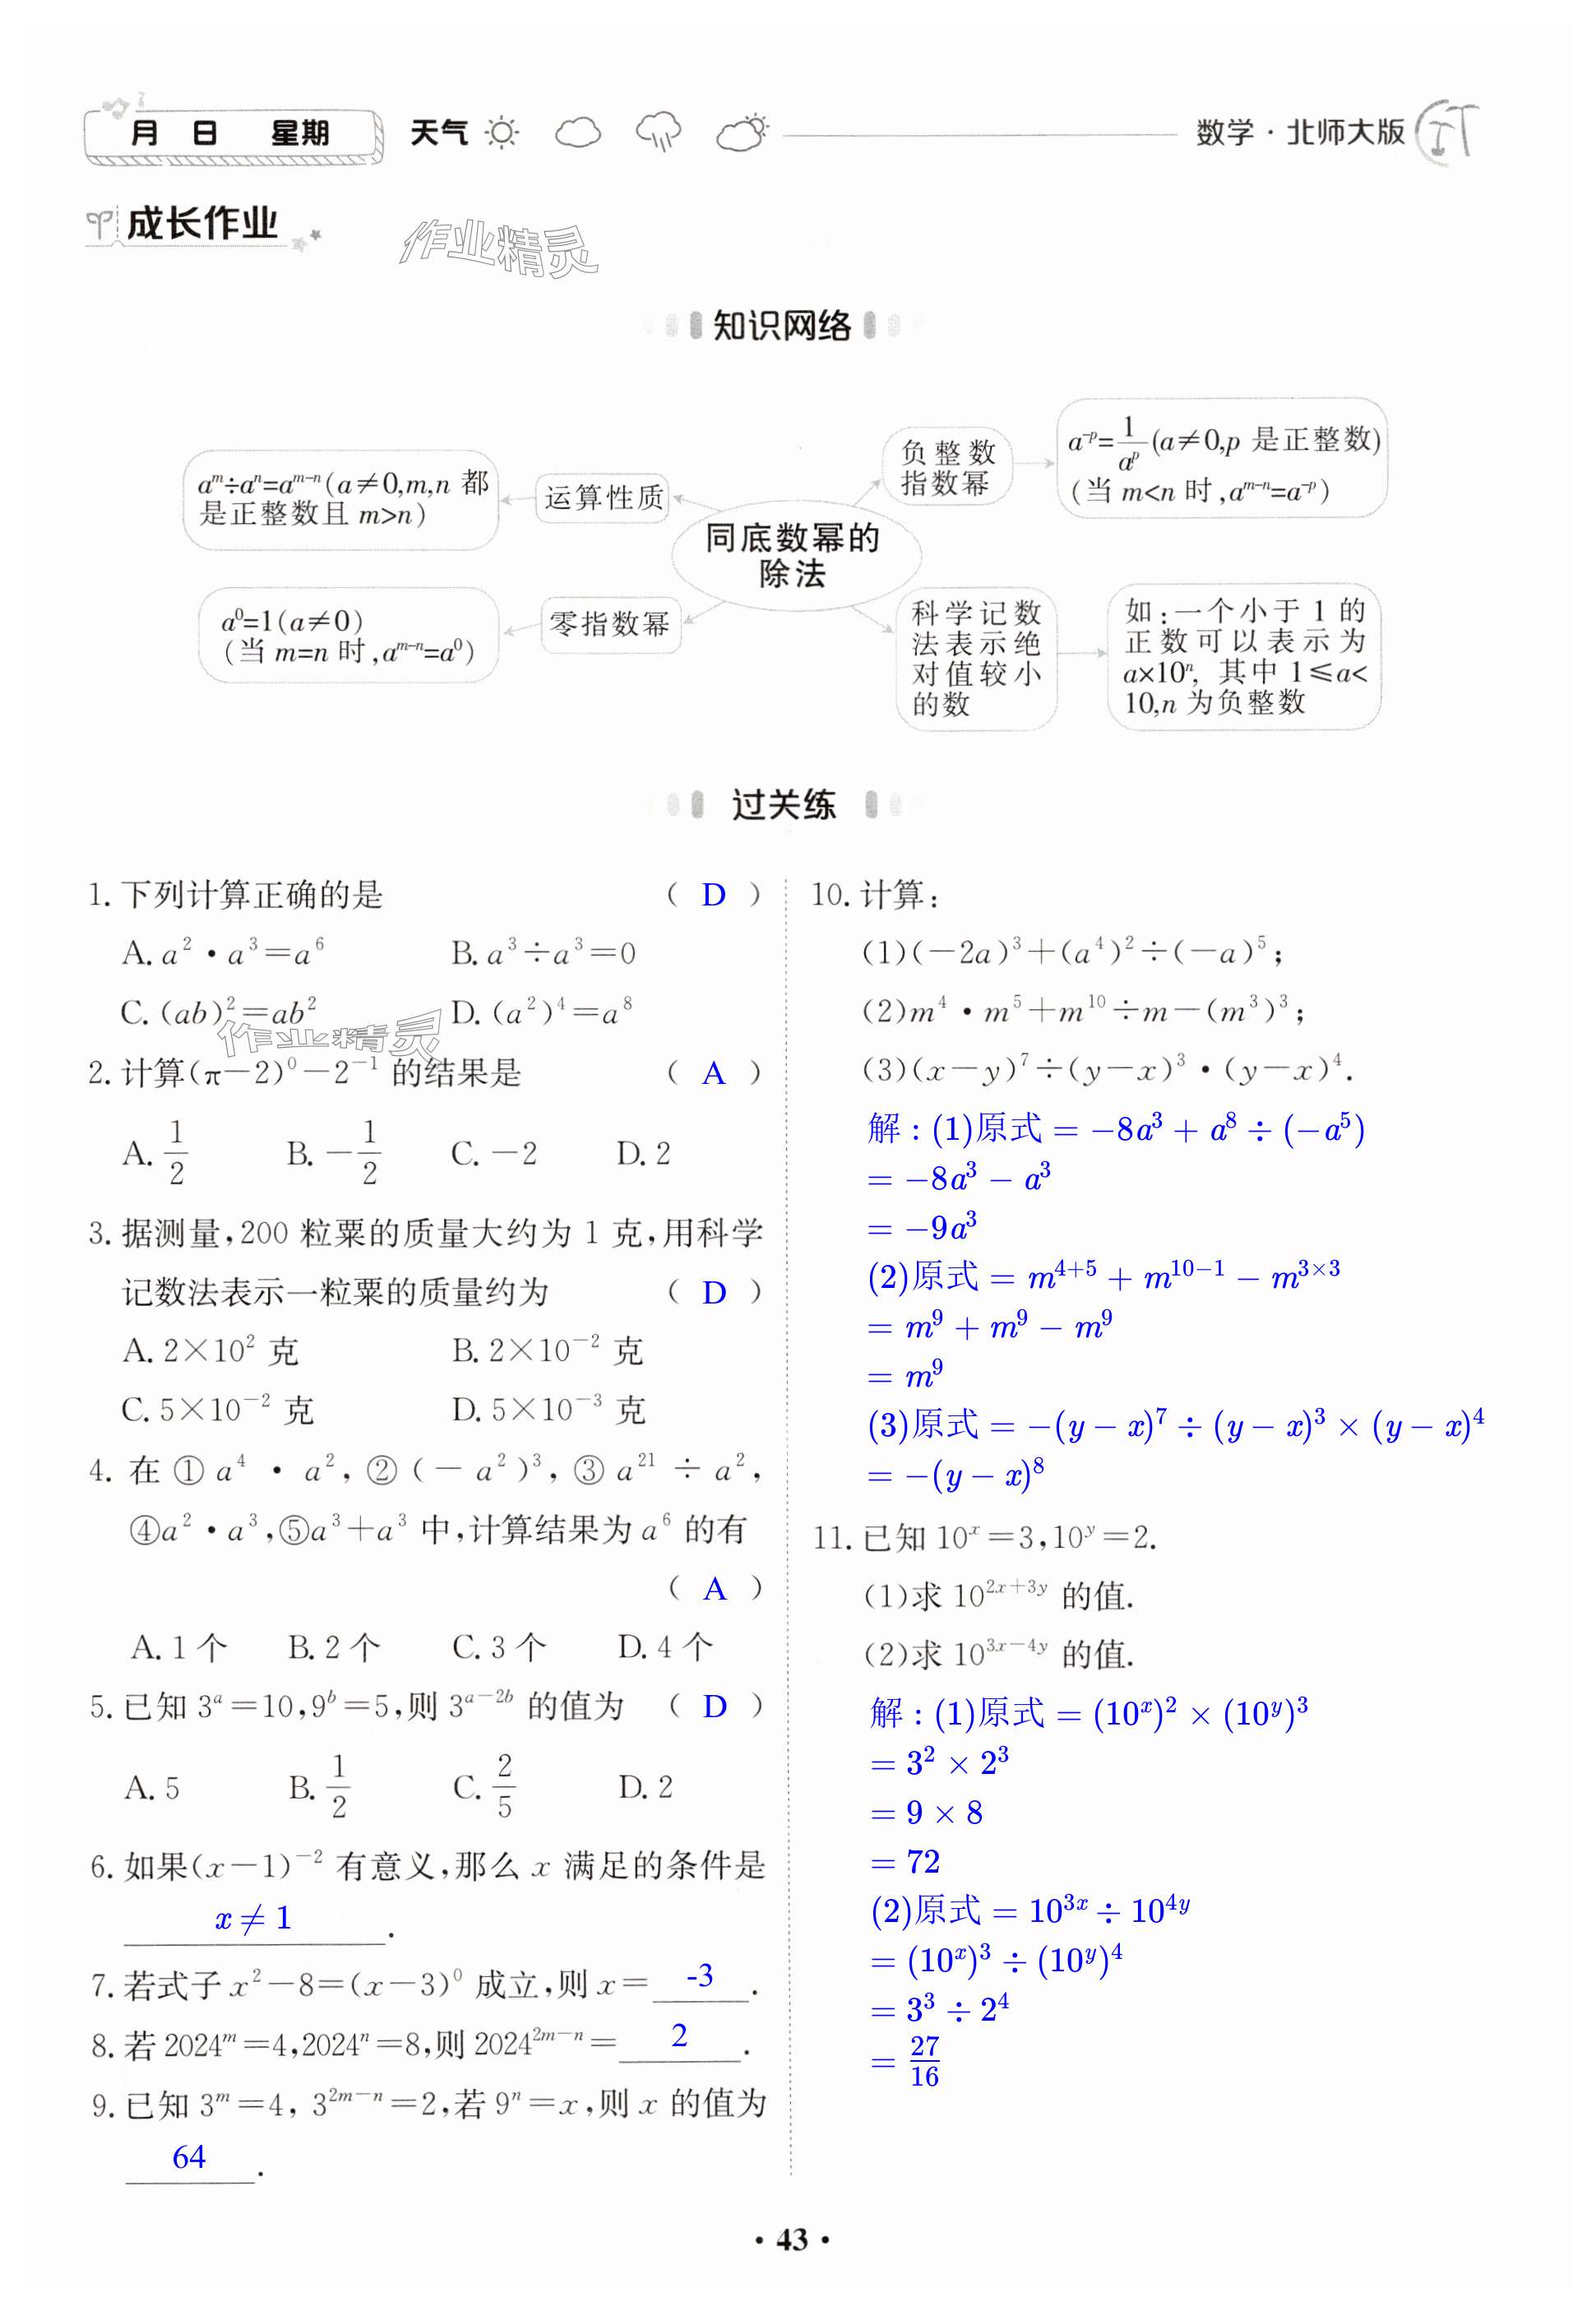 月 日 星期 天气 数学·北师大版
成长作业
作业精灵
知识网络
aᵐ÷aⁿ=aᵐ⁻ⁿ(a≠0,m,n 都
是正整数且 m>n)
运算性质
同底数幂的
除法
负整数
指数幂
a⁻ᵖ=1/aᵖ(a≠0,p 是正整数)
(当 m<n 时,aᵐ⁻ⁿ=a⁻ᵖ)
a⁰=1(a≠0)
(当 m=n 时,aᵐ⁻ⁿ=a⁰)
零指数幂
科学记数
法表示绝
对值较小
的数
如:一个小于 1 的
正数可以表示为
a×10ⁿ, 其中 1≤a<
10,n 为负整数
过关练
1. 下列计算正确的是 ( D )
A. a²·a³=a⁶ B. a³÷a³=0
C. (ab)²=ab² D. (a²)⁴=a⁸
作业精灵
2. 计算(π-2)⁰-2⁻¹ 的结果是 ( A )
A. 1/2 B. -1/2 C. -2 D. 2
3. 据测量,200 粒粟的质量大约为 1 克,用科学
记数法表示一粒粟的质量约为 ( D )
A. 2×10² 克 B. 2×10⁻² 克
C. 5×10⁻² 克 D. 5×10⁻³ 克
4. 在 ① a⁴·a², ② (-a²)³, ③ a²¹÷a²,
④a²·a³,⑤a³+a³ 中,计算结果为 a⁶ 的有
( A )
A. 1 个 B. 2 个 C. 3 个 D. 4 个
5. 已知 3ᵃ=10,9ᵇ=5,则 3ᵃ⁻²ᵇ 的值为 ( D )
A. 5 B. 1/2 C. 2/5 D. 2
6. 如果(x-1)⁻² 有意义,那么 x 满足的条件是
x≠1.
7. 若式子 x²-8=(x-3)⁰ 成立,则 x=-3.
8. 若 2024ᵐ=4,2024ⁿ=8,则 2024²ᵐ⁻ⁿ=2.
9. 已知 3ᵐ=4, 3²ᵐ⁻ⁿ=2,若 9ⁿ=x,则 x 的值为
64.
10. 计算:
(1)(-2a)³+(a⁴)²÷(-a)⁵;
(2)m⁴·m⁵+m¹⁰÷m-(m³)³;
(3)(x-y)⁷÷(y-x)³·(y-x)⁴.
解:(1)原式=-8a³+a⁸÷(-a⁵)
=-8a³-a³
=-9a³
(2)原式=m⁴⁺⁵+m¹⁰⁻¹-m³ˣ³
=m⁹+m⁹-m⁹
=m⁹
(3)原式=-(y-x)⁷÷(y-x)³×(y-x)⁴
=-(y-x)⁸
11. 已知 10ˣ=3,10ʸ=2.
(1)求 10²ˣ⁺³ʸ 的值.
(2)求 10³ˣ⁻⁴ʸ 的值.
解:(1)原式=(10ˣ)²×(10ʸ)³
=3²×2³
=9×8
=72
(2)原式=10³ˣ÷10⁴ʸ
=(10ˣ)³÷(10ʸ)⁴
=3³÷2⁴
=27/16
·43·